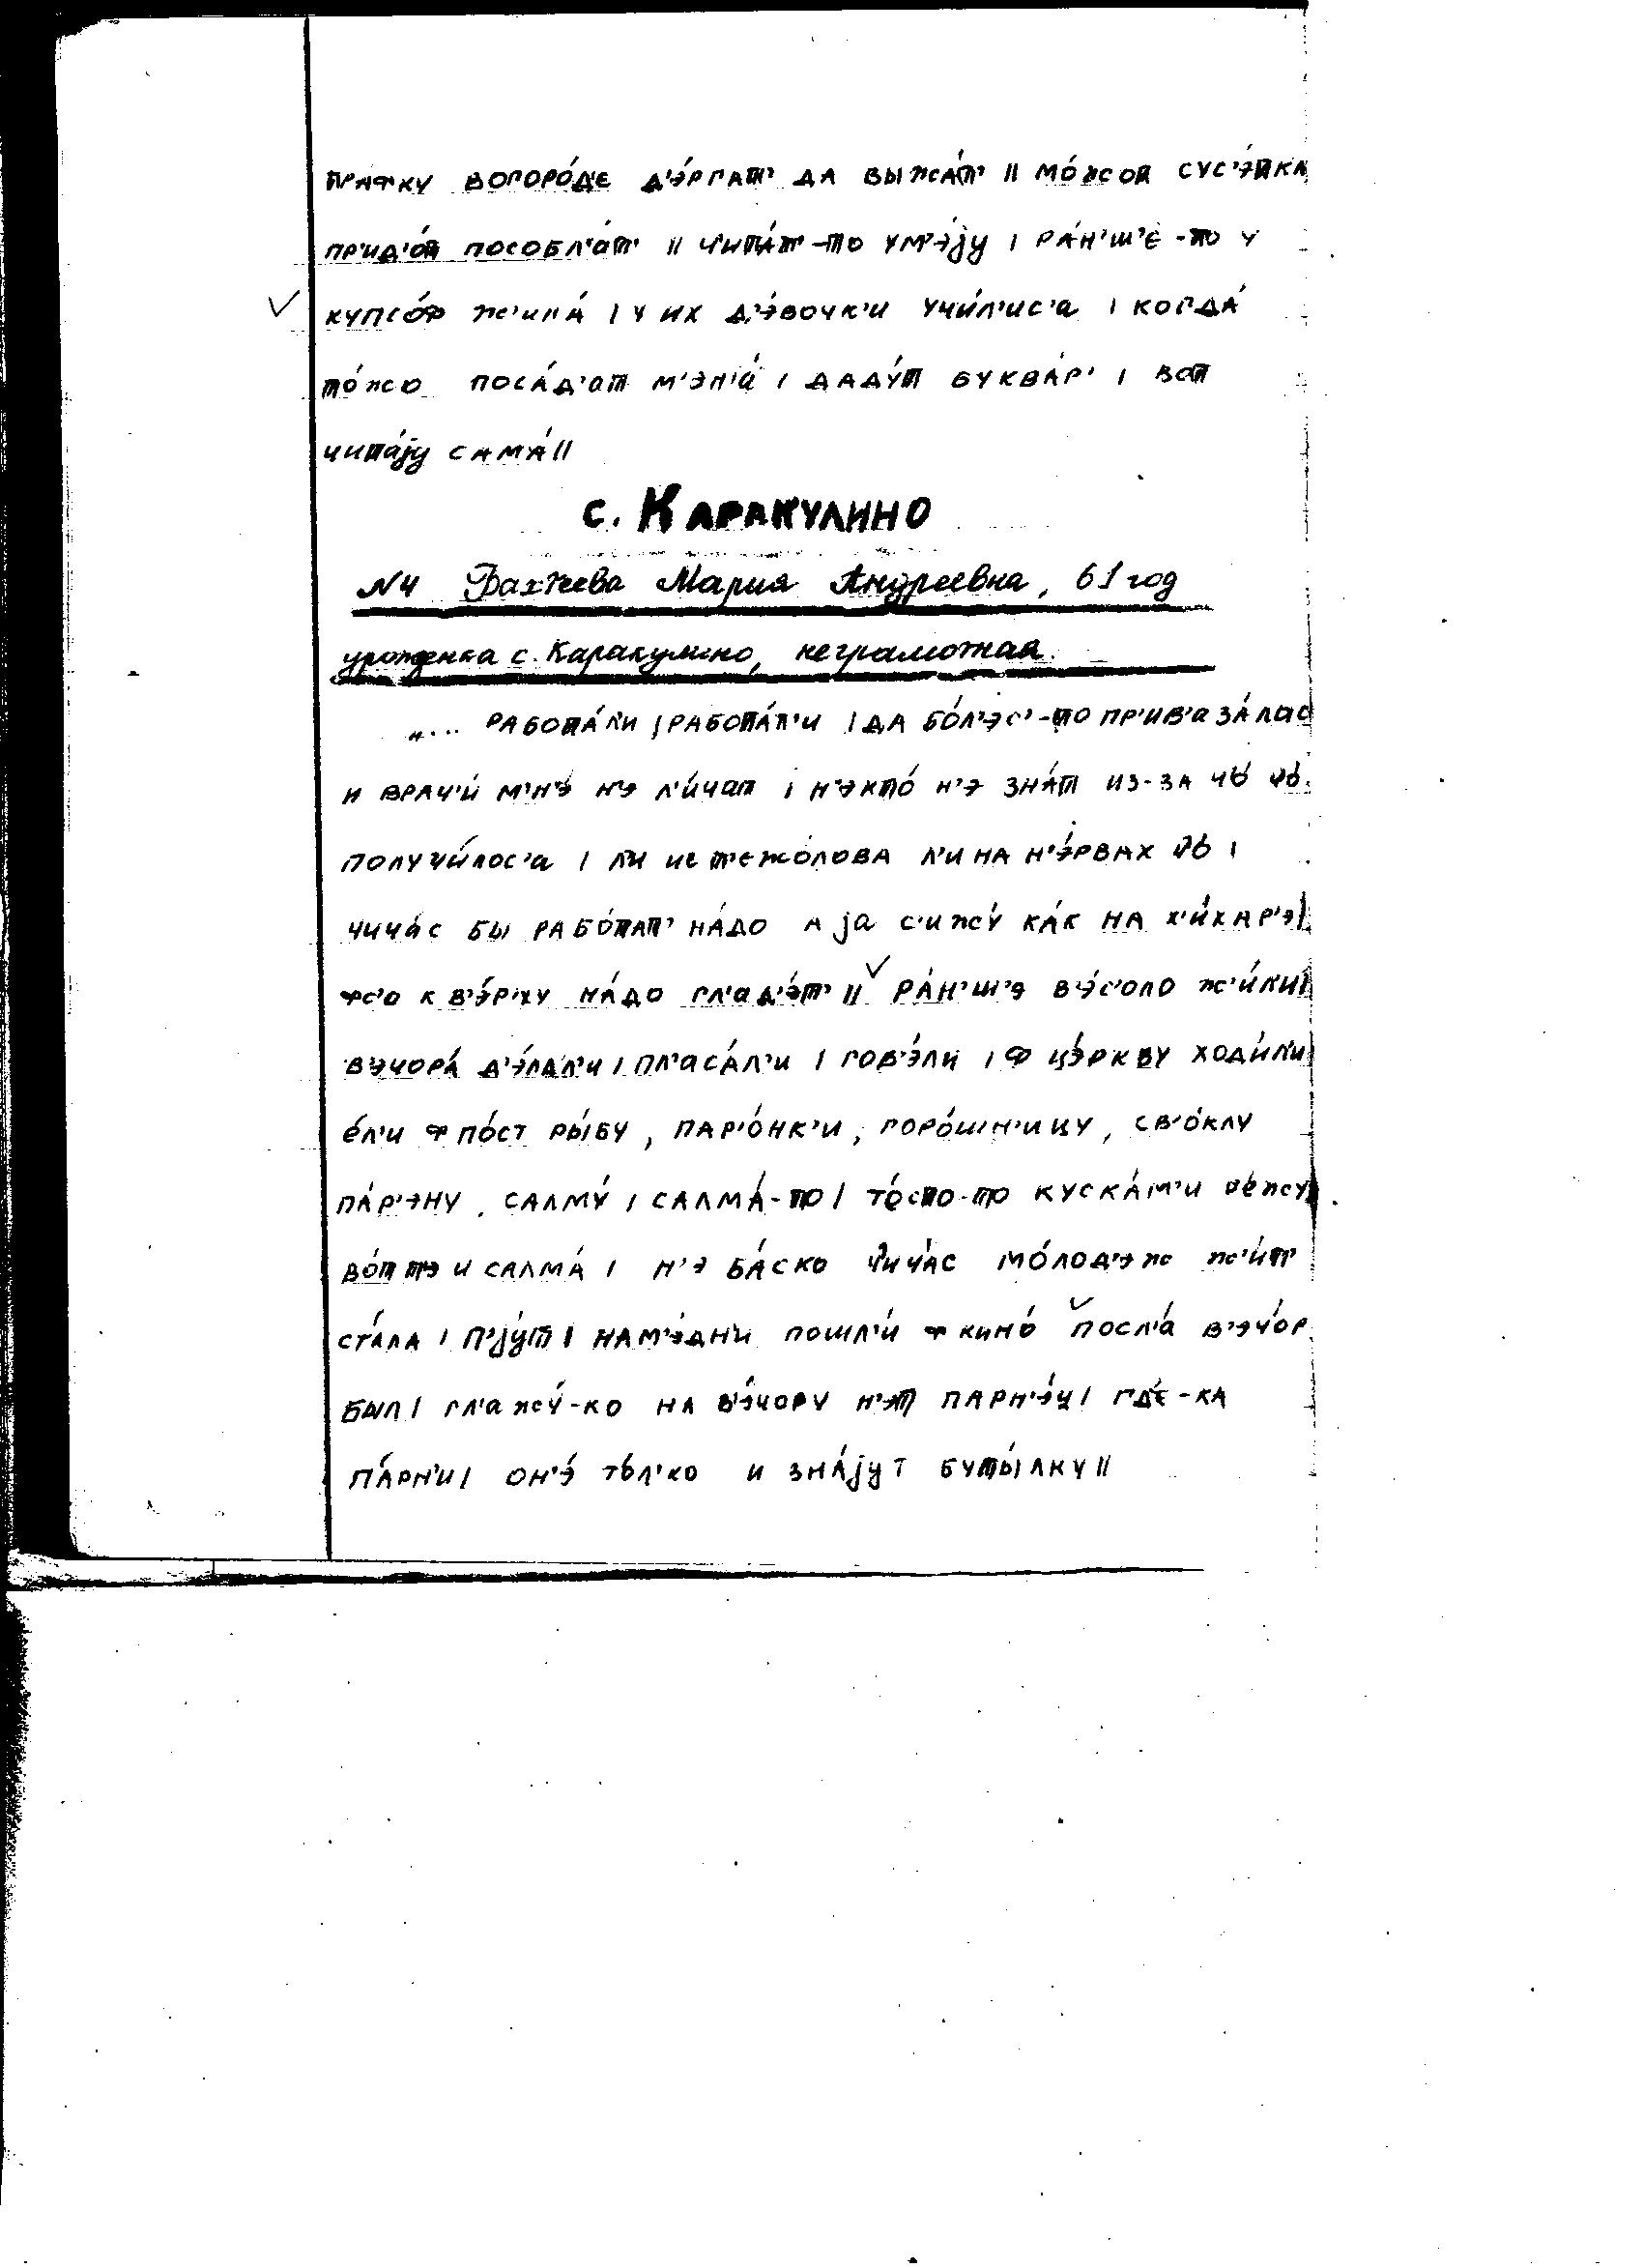 тра́фку вогоро́д'е д'э́ргат' да выжа́т' || мо́жой сус'э́тка
пр'ид'о́т пособл'а́т' || ч'ита́т'-то ум'э́jу | ра́н'ш'е-то у
купсо́ф ж'ила́ | у их д'э́вочк'и учи́л'ис'а | когда́
то́жо поса́д'ат м'эн'а́ | даду́т буква́р' | вот
чита́jу сама́ ||
с. Каракулино
№4 Бахтеева Мария Андреевна, 61 год
уроженка с. Каракулино, неграмотная.
„... рабо́тали | рабо́тал'и | да бо́л'эс'-то пр'ив'аза́лас
и врач'и́ м'н'э́ н'э л'и́чат | н'экто́ н'э зна́т из-за чо́
получи́лос'а | л'и ис т'ежо́лова л'и на н'э́рвах |
чича́с бы рабо́тат' на́до а jа с'ижу́ ка́к на х'и́хар'э |
фс'о к в'э́рху на́до гл'ад'э́т' || ра́н'ш'э в'э́с'оло ж'и́ли |
в'эчора́ д'э́лал'и | пл'аса́л'и | гов'э́ли | ф цэ́ркву ходи́л'и |
е́л'и ф по́ст ры́бу, пар'о́нк'и, горо́шн'ицу, св'о́клу
па́р'эну, салму́ | салма́-то | те́сто-то куска́м'и ре́жут
во́т тэ и салма́ | н'э ба́ско чича́с мо́лод'эж ж'ит'
ста́ла | п'jу́т | нам'э́дни пошл'и́ ф кино́ посл'а́ в'эчо́р
был | гл'ажу́-ко на в'э́чору н'эт парн'э́ч | гд'е́-ка
па́рн'и | он'э́ то́л'ко и зна́jут буты́лку ||